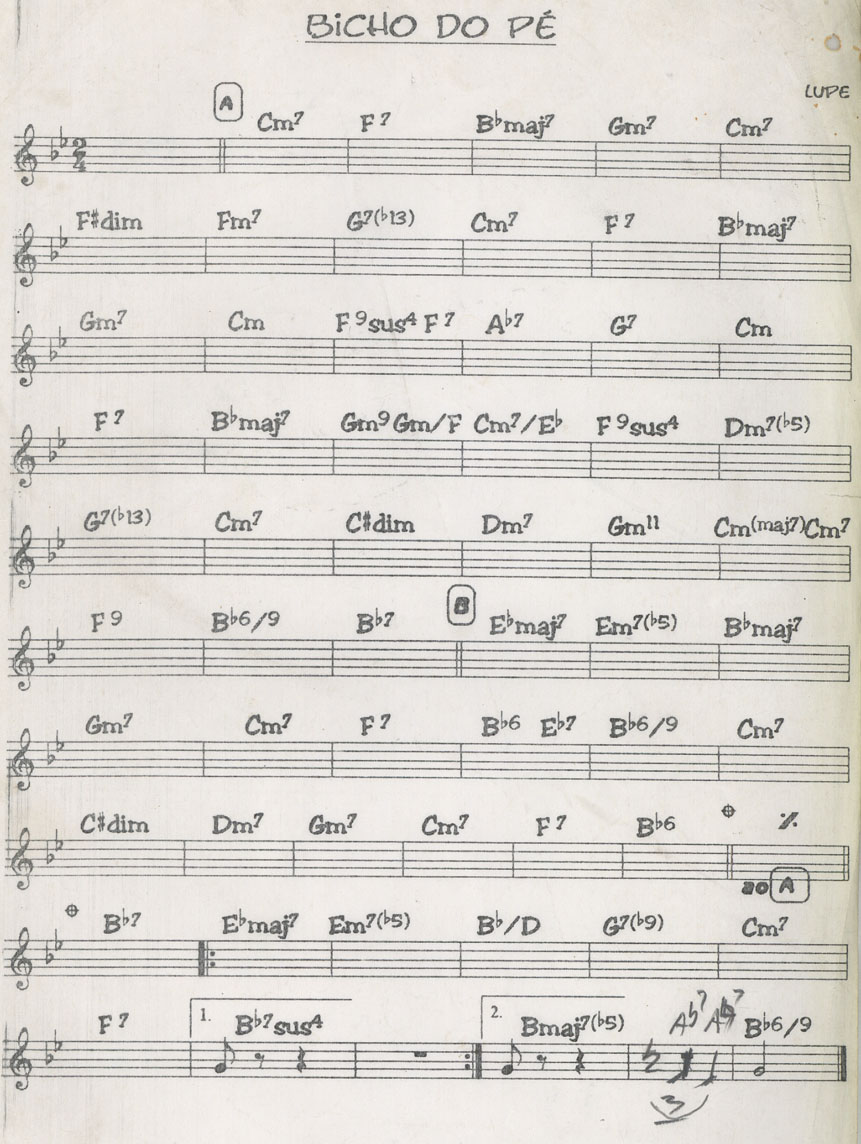 BiCHO DO PÉ
LUPE
A
Cm7 F7 B♭maj7 Gm7 Cm7
2/4
F♯dim Fm7 G7(♭13) Cm7 F7 B♭maj7
Gm7 Cm F9sus4 F7 A♭7 G7 Cm
F7 B♭maj7 Gm9 Gm/F Cm7/E♭ F9sus4 Dm7(♭5)
G7(♭13) Cm7 C♯dim Dm7 Gm11 Cm(maj7) Cm7
B
F9 B♭6/9 B♭7 E♭maj7 Em7(♭5) B♭maj7
Gm7 Cm7 F7 B♭6 E♭7 B♭6/9 Cm7
C♯dim Dm7 Gm7 Cm7 F7 B♭6
ao A
B♭7 E♭maj7 Em7(♭5) B♭/D G7(♭9) Cm7
F7 1. B♭7sus4 2. Bmaj7(♭5) A♭7 B♭6/9
3